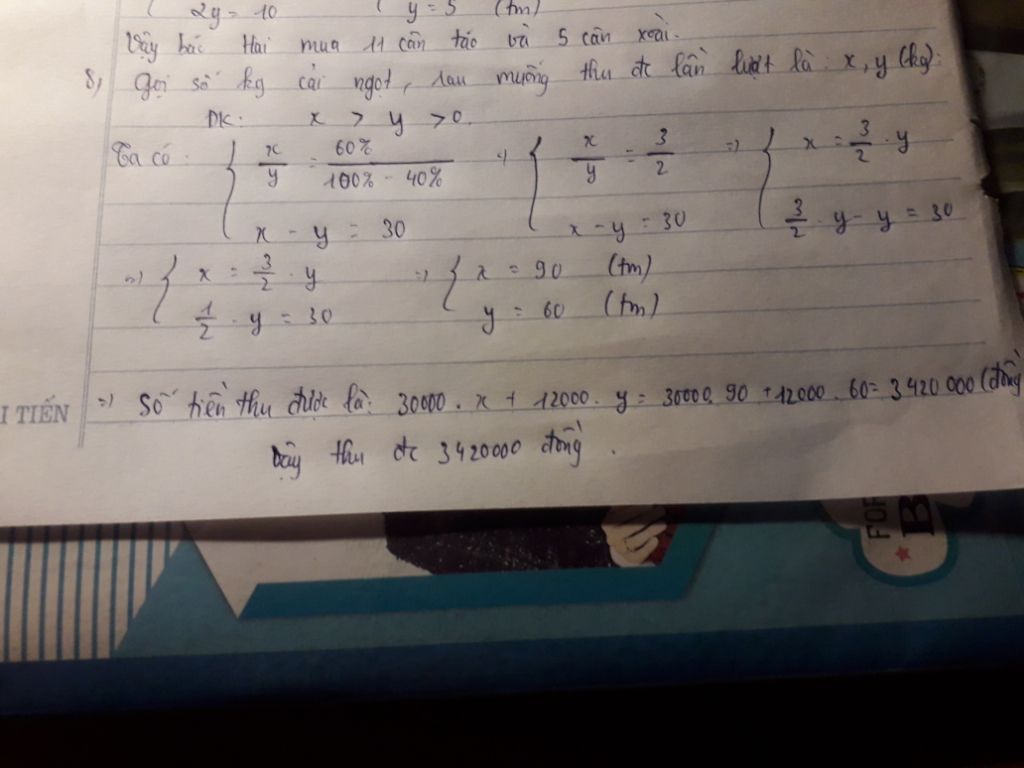 2y = 10 y = 5 (tm)
Vậy bác Hai mua 11 cân táo và 5 cân xoài.
8, Gọi số kg cải ngọt, rau muống thu đc lần lượt là : x, y (kg):
ĐK: x > y > 0.
Ta có : { x/y = 60%/(100% - 40%) => { x/y = 3/2 => { x = 3/2 . y
x - y = 30 x - y = 30 3/2 . y - y = 30
=> { x = 3/2 . y => { x = 90 (tm)
1/2 . y = 30 y = 60 (tm)
=> Số tiền thu được là: 30000 . x + 12000 . y = 30000. 90 + 12000 . 60 = 3420 000 (đồng
Vậy thu đc 3420000 đồng .
I TIẾN
FOR
B